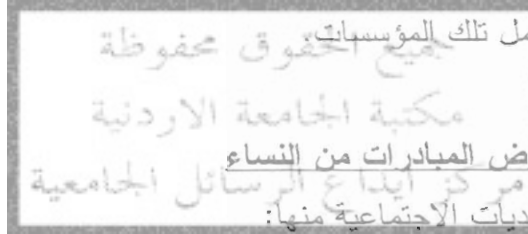 مل تلك المؤسسات
جميع الحقوق محفوظة
مكتبة الجامعة الاردنية
ض المبادرات من النساء
مركز ايداع الرسائل الجامعية
ديات الاجتماعية منها: